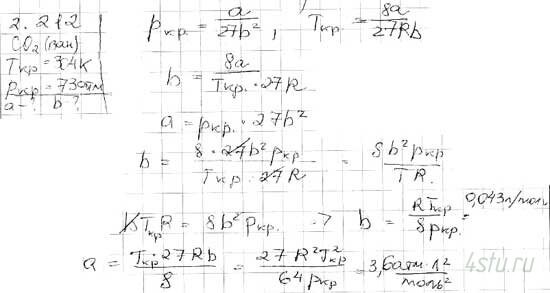 2. 212
CO₂ (ван)
Tкр = 304К
Pкр = 73атм
a - ? b - ?
pкр. = a/27b², Tкр. = 8a/27Rb
b = 8a/Tкр. · 27R
a = pкр. · 27b²
b = 8 · 27b² pкр/Tкр · 27R = 8b² pкр/TR.
bTкрR = 8b² Pкр. => b = RTкр/8pкр. = 0,043л/моль
a = Tкр · 27Rb/8 = 27R²T²кр/64pкр = 3,6атм · л²/моль²
4stu.ru